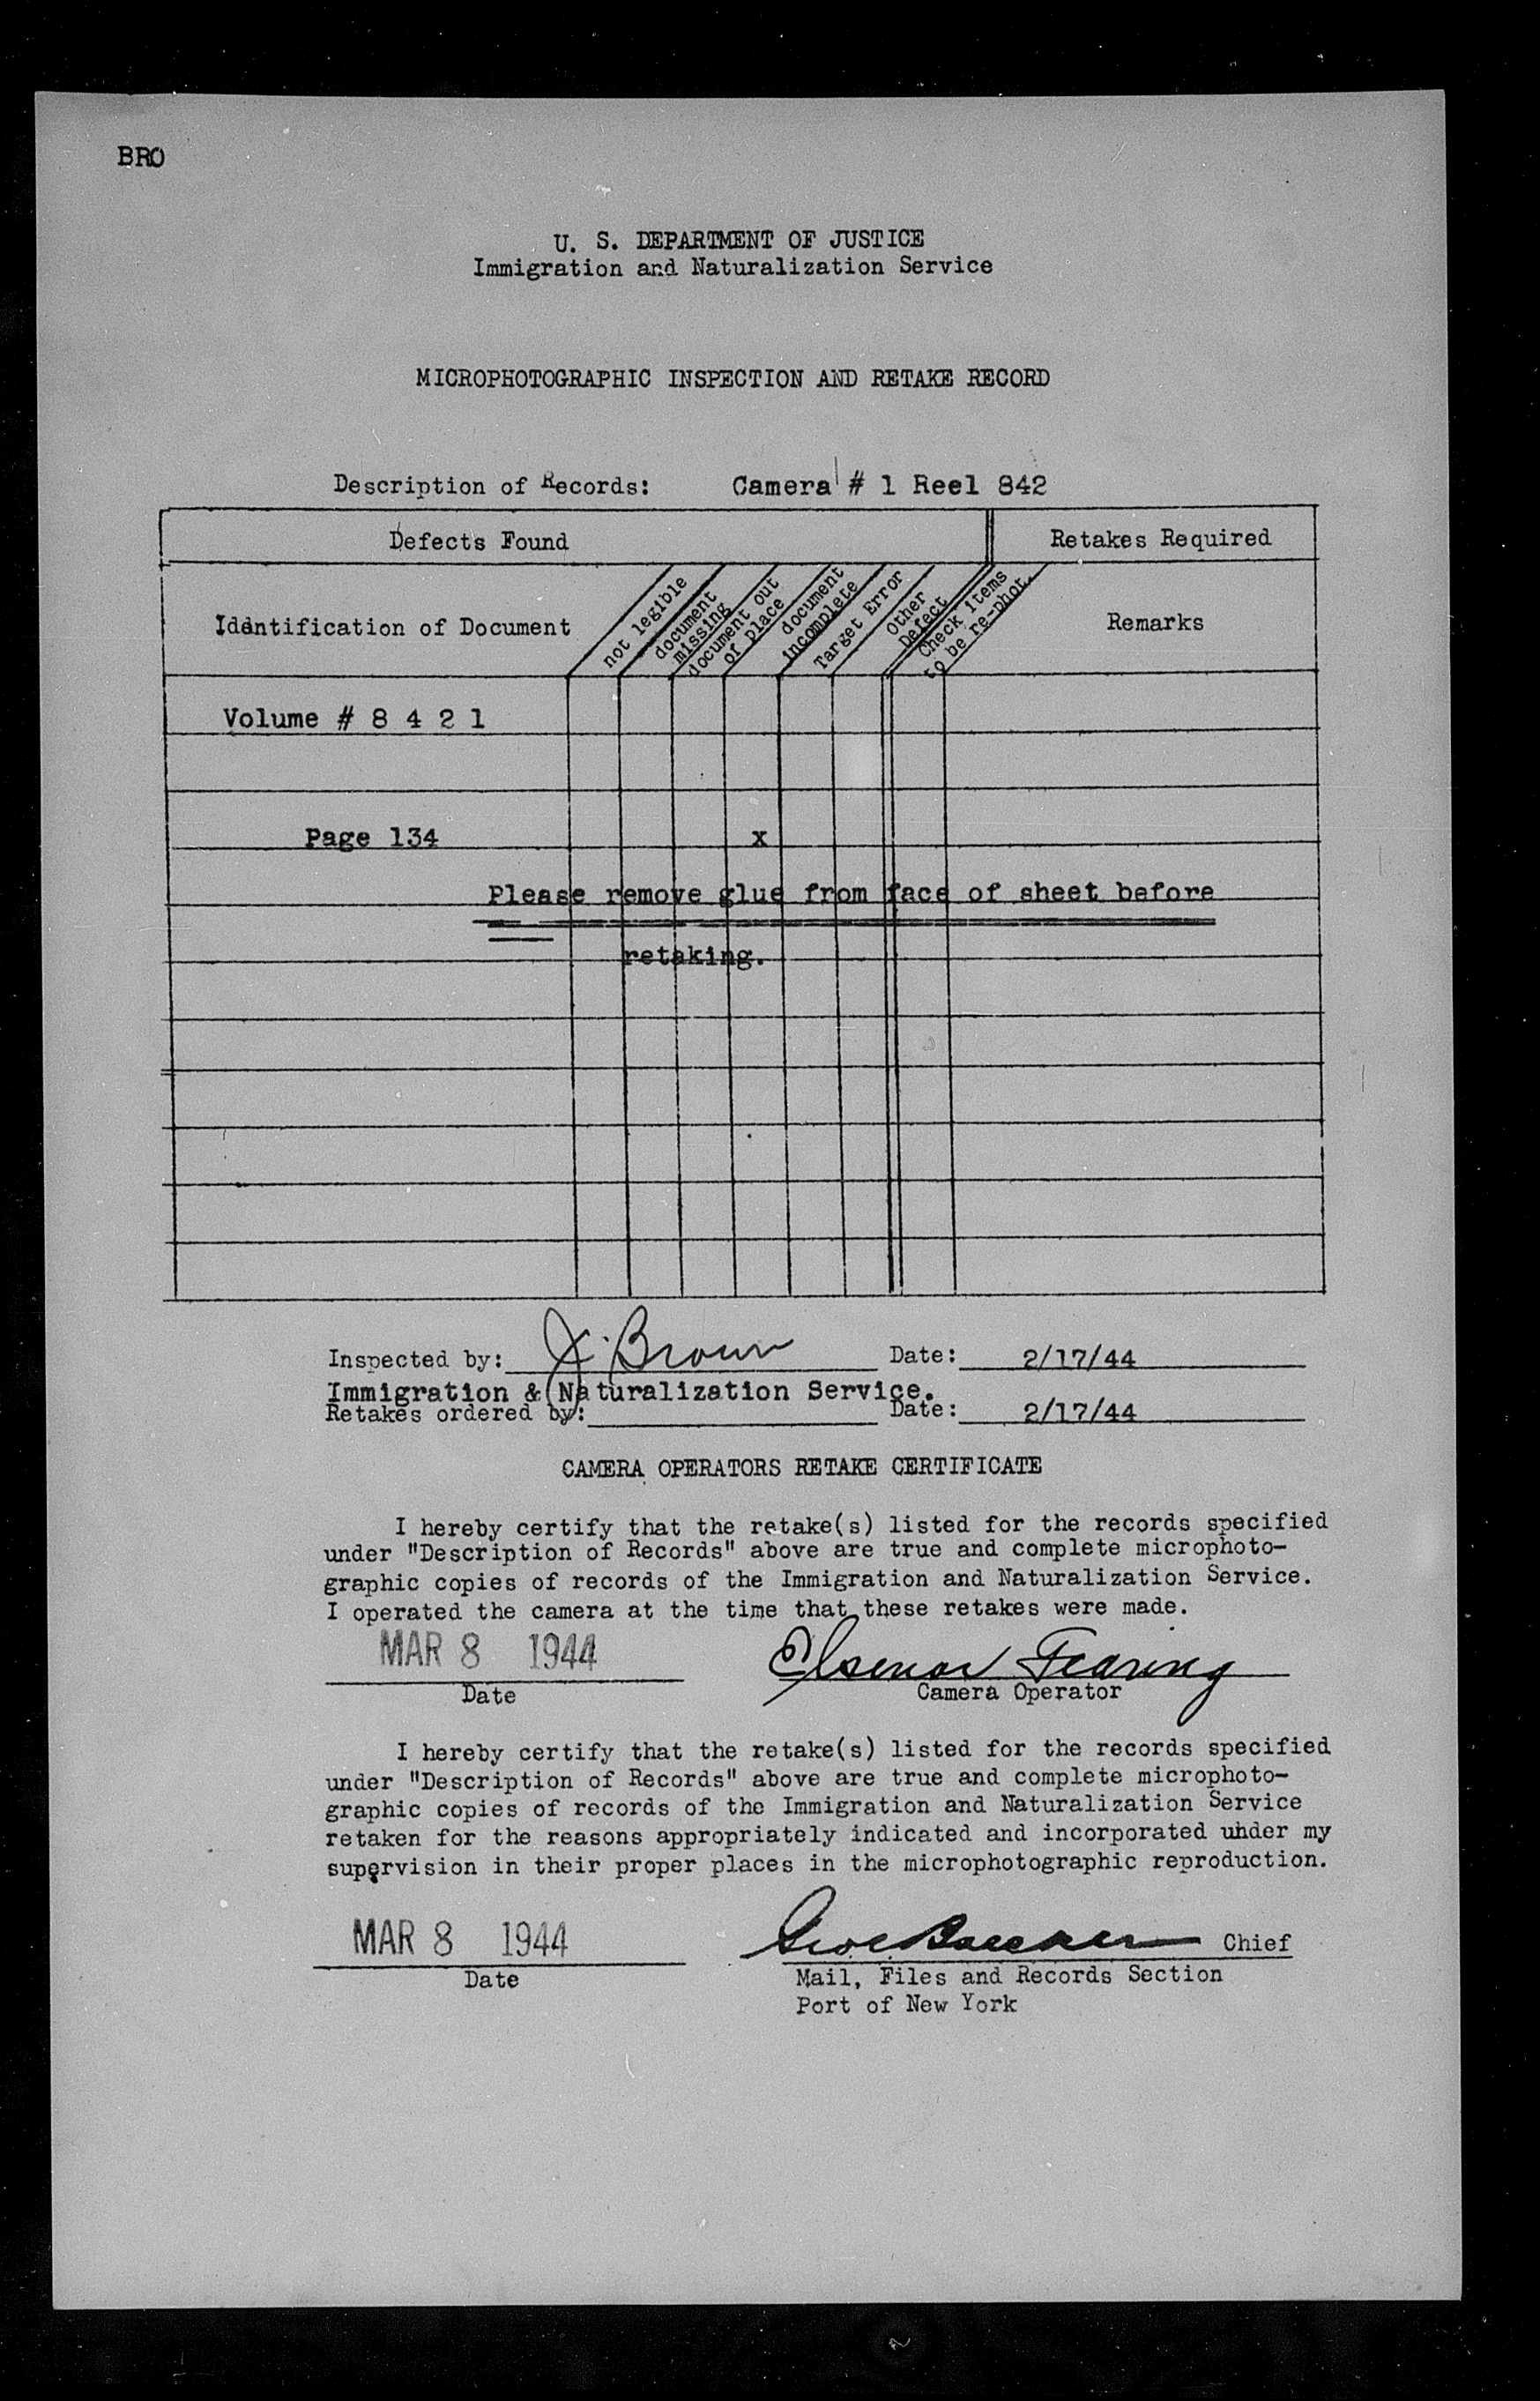 BRO
U. S. DEPARTMENT OF JUSTICE
Immigration and Naturalization Service
MICROPHOTOGRAPHIC INSPECTION AND RETAKE RECORD
Description of Records: Camera # 1 Reel 842
Defects Found
Retakes Required
Identification of Document
not legible
document
missing
document out
of place
document
incomplete
Target Error
Other
Defect
Check items
to be re-phot.
Remarks
Volume # 8 4 2 1
Page 134 x
Please remove glue from face of sheet before
retaking.
Inspected by: J. Brown Date: 2/17/44
Immigration & Naturalization Service.
Retakes ordered by: Date: 2/17/44
CAMERA OPERATORS RETAKE CERTIFICATE
I hereby certify that the retake(s) listed for the records specified
under "Description of Records" above are true and complete microphoto-
graphic copies of records of the Immigration and Naturalization Service.
I operated the camera at the time that these retakes were made.
MAR 8 1944
Fearing
Date
Camera Operator
I hereby certify that the retake(s) listed for the records specified
under "Description of Records" above are true and complete microphoto-
graphic copies of records of the Immigration and Naturalization Service
retaken for the reasons appropriately indicated and incorporated uhder my
supervision in their proper places in the microphotographic reproduction.
MAR 8 1944
Chief
Date
Mail, Files and Records Section
Port of New York